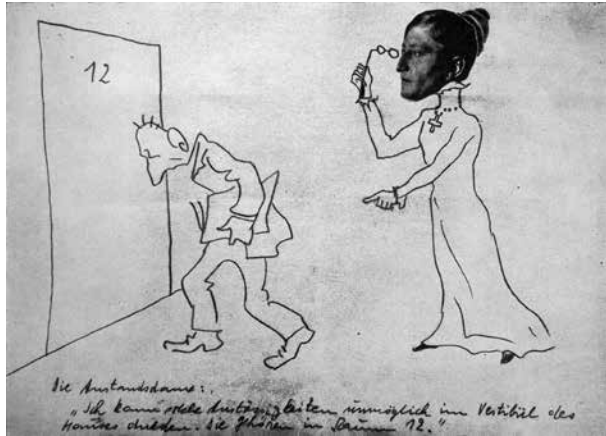 12
Die Anstandsdame:
"Ich kann solche Anstößigkeiten unmöglich im Vestibül des
Hauses dulden. Sie gehören in Raum 12."